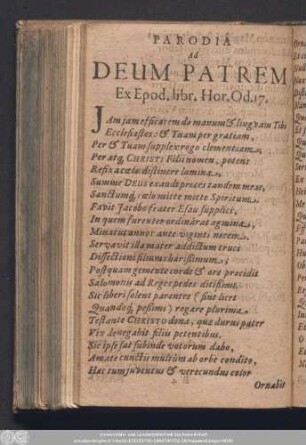 PARODIA
Ad
DEUM PATREM
Ex Epod. libr. Hor. Od. 17.
JAm jam efficacem do manum & linguam Tibi
Ecclesiastes: & Tuam per gratiam,
Per & Tuam supplex rogo clementiam,
Per atq; CHRISTI Filii nomen, potens
Refix a cœlo distinere lumina,
Summe DEUS exaudi preces tandem meas,
Sanctumq; cœlo mitte mitte Spiritum.
Favit Jacobo frater Esau supplici,
In quem furenter ordinarat agmina,
Minatus annos ante viginti necem.
Servavit illa mater addictum truci
Dissectioni filium charissimum,
Postquam gemente corde & ore procidit
Salomonis ad Reges pedes ditissimi.
Sic liberi solent parentes (sint licet
Quandoq; pessimi) rogare plurima
Testante CHRISTO dona, quæ durus pater
Vix denegabit filii petentibus.
Sic ipse sat subinde votorum dabo,
Amate cunctis multùm ab orbe condito,
Hac tum juventus & verecundus color
Ornabit